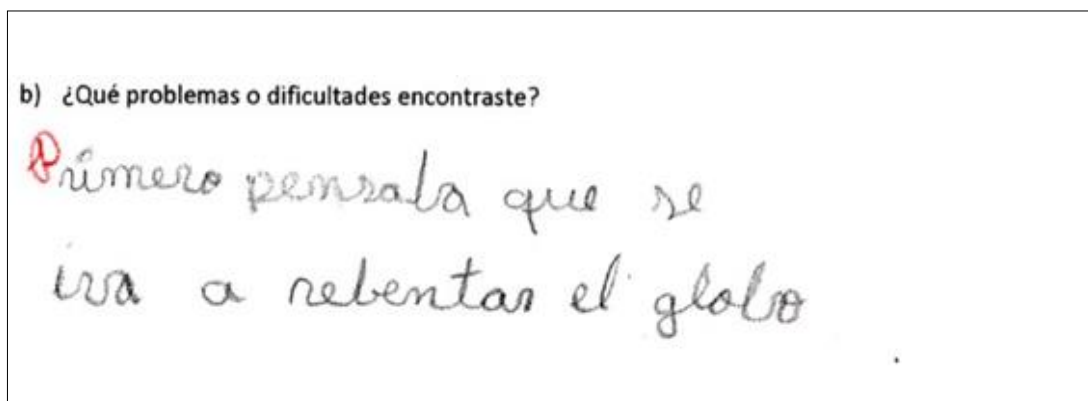 b) ¿Qué problemas o dificultades encontraste?
Primero pensaba que se
iva a rebentar el globo